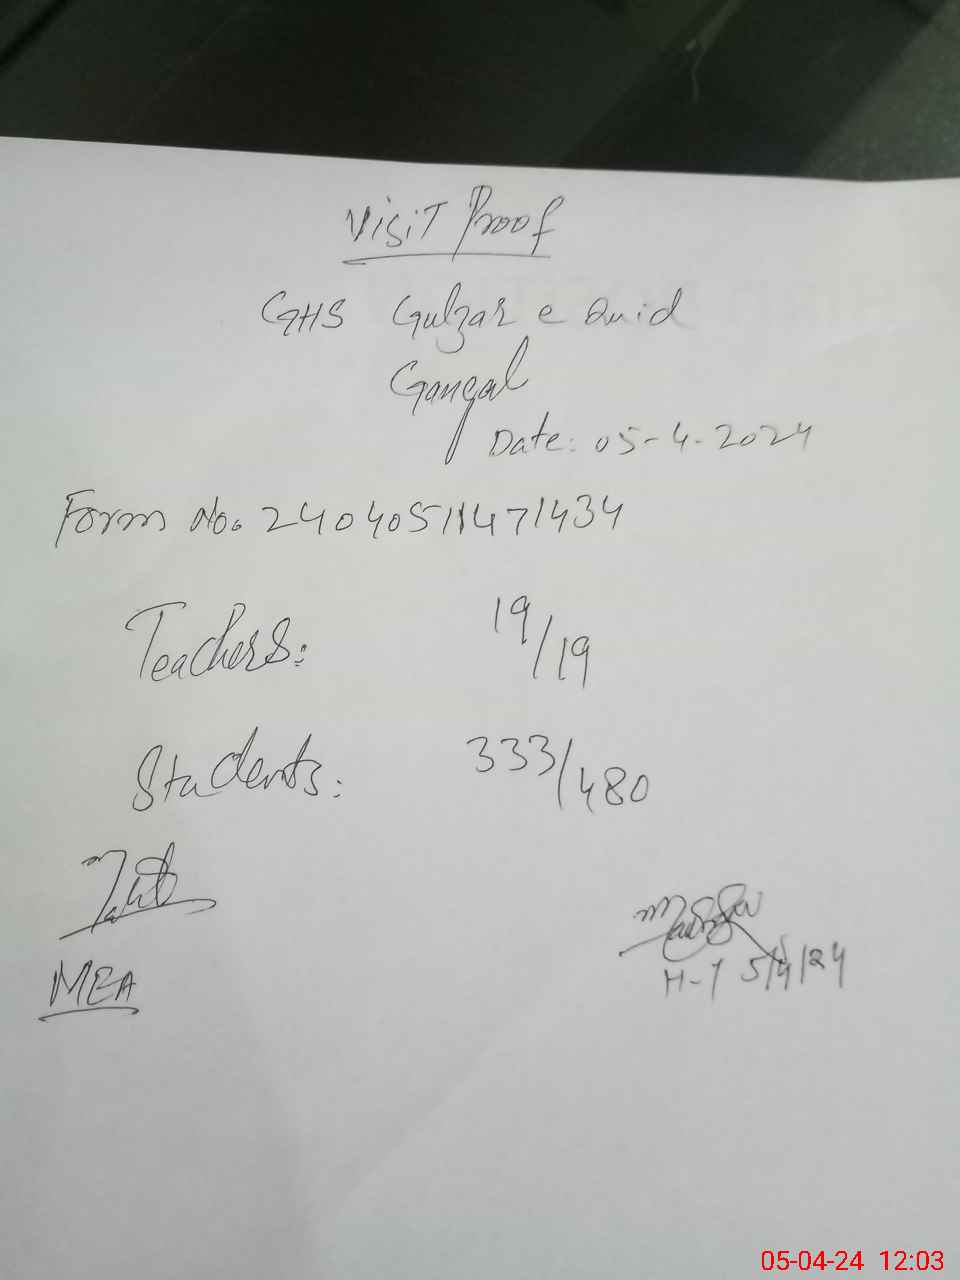 Visit Proof
GHS Gulzar e Quid
Gangal
Date: 05-4-2024
Form No. 24040511471434
Teachers: 19/19
Students: 333/480
MEA
H-T 5/4/24
05-04-24 12:03